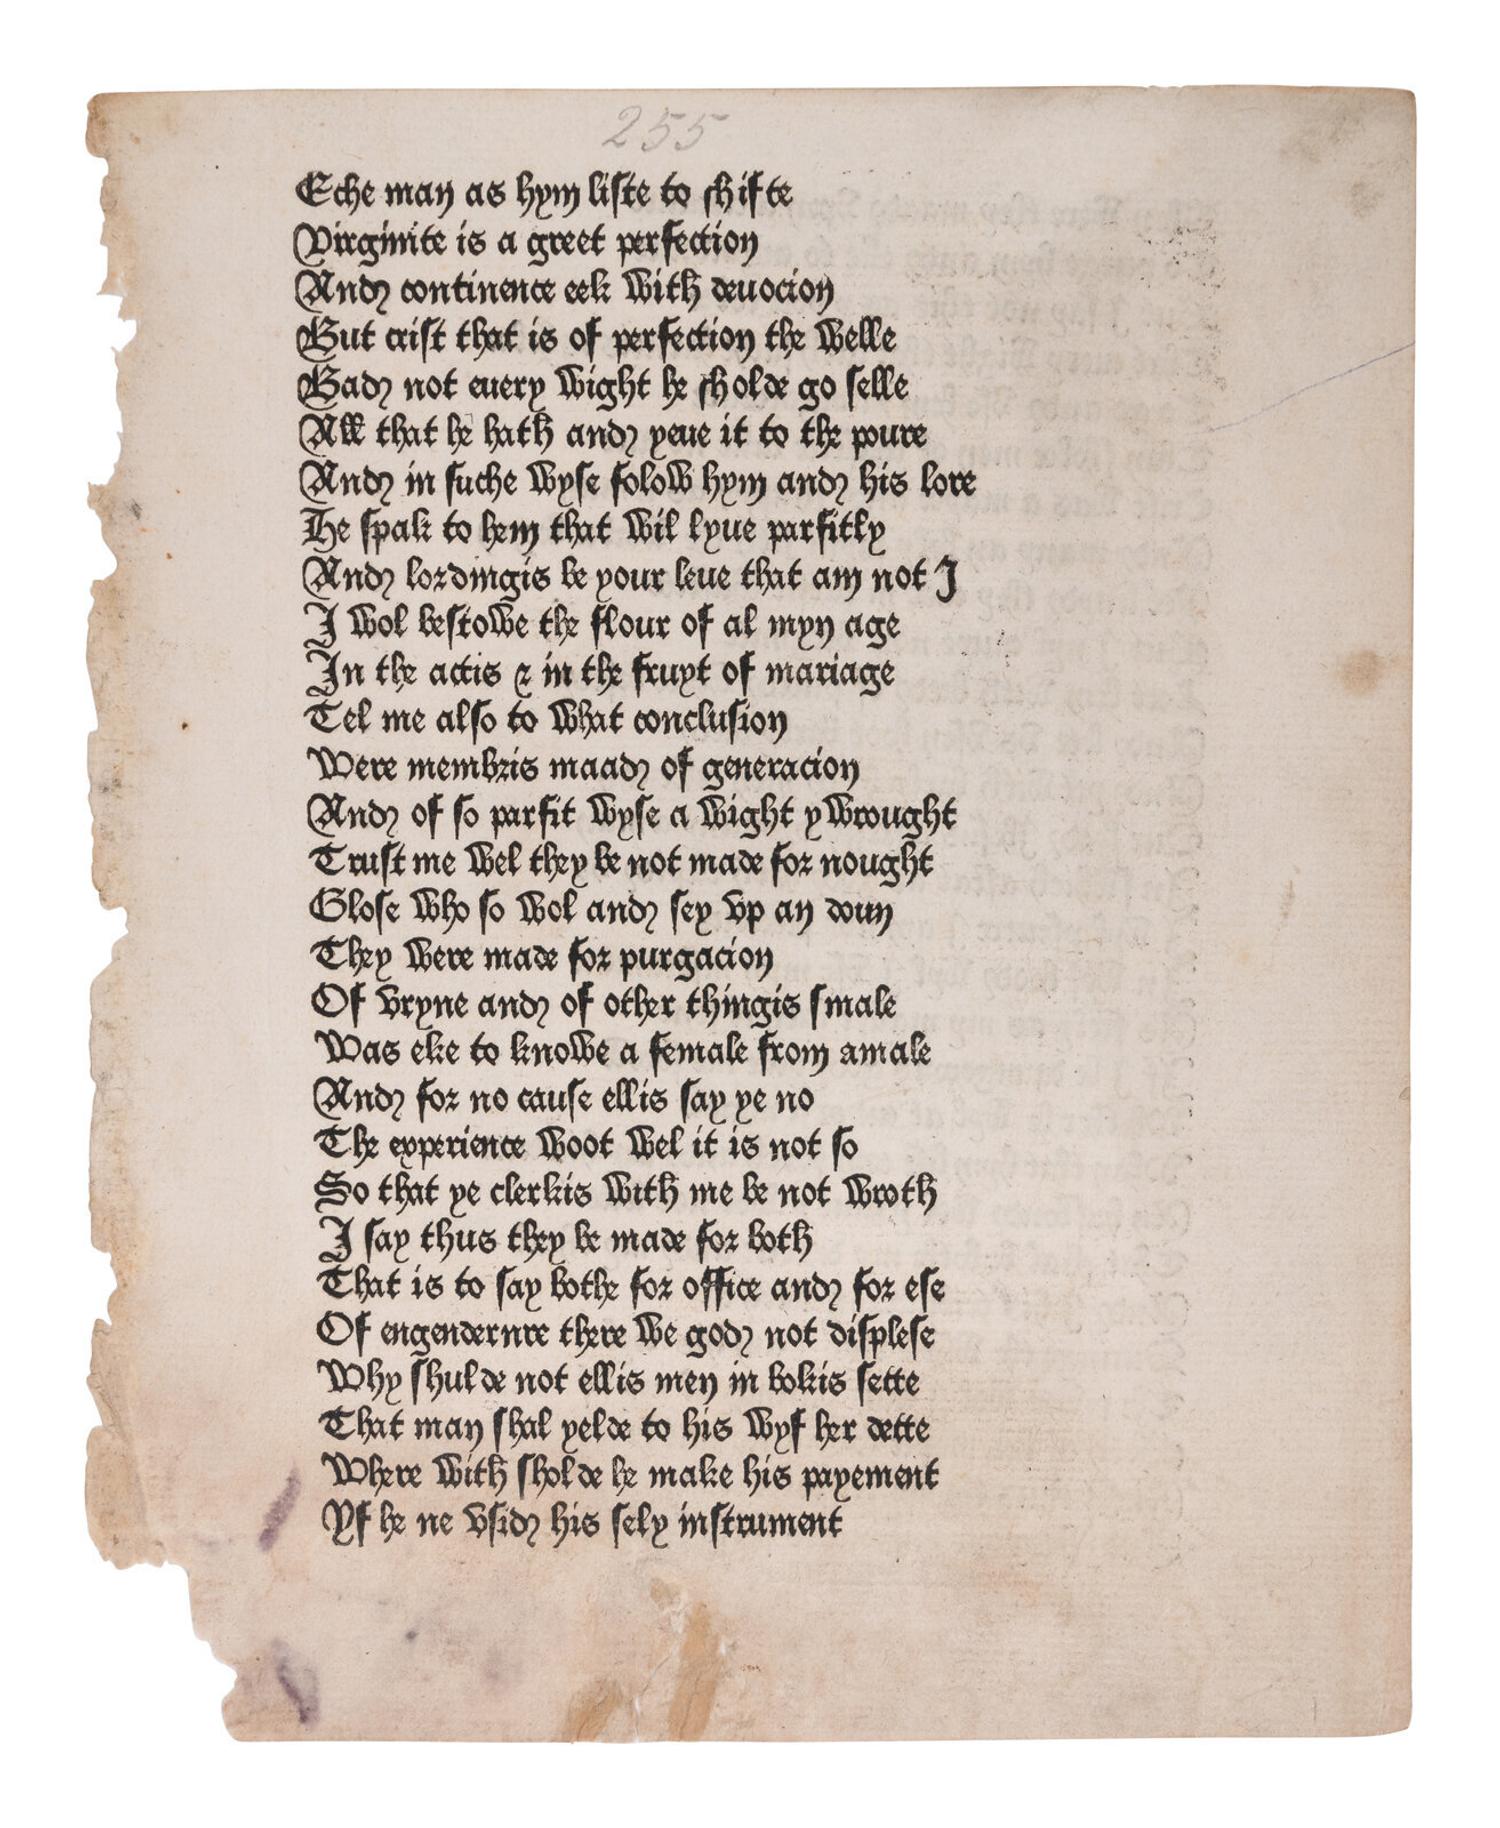 255
Eche man as hym liste to shifte
Virginite is a greet perfection
And continence eek with deuocion
But crist that is of perfection the welle
Bad not euery wight he sholde go selle
All that he hath and yeue it to the poure
And in suche wyse folow hym and his lore
He spak to hem that wil lyue parfitly
And lordingis be your leue that am not I
I wol bestowe the flour of al myn age
In the actis & in the fruyt of mariage
Tel me also to what conclusion
Were membris maad of generacion
And of so parfit wyse a wight ywrought
Trust me wel they be not made for nought
Glose who so wol and sey vp an doun
They were made for purgacion
Of vryne and of other thingis smale
Was eke to knowe a female from amale
And for no cause ellis say ye no
The experience woot wel it is not so
So that ye clerkis with me be not wroth
I say thus they be made for both
That is to say bothe for office and for ese
Of engendernre there we god not displese
Why shulde not ellis men in bokis sette
That man shal yelde to his wyf her dette
Where with sholde he make his payement
Yf he ne vsid his sely instrument